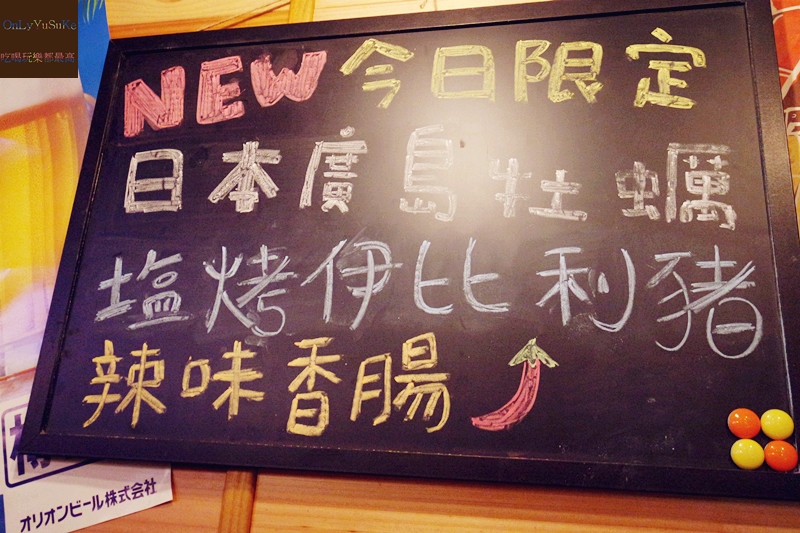 OnLyYuSuKe
吃喝玩樂都最高
NEW今日限定
日本廣島牡蠣
塩烤伊比利豬
辣味香腸
オリオンビール株式会社